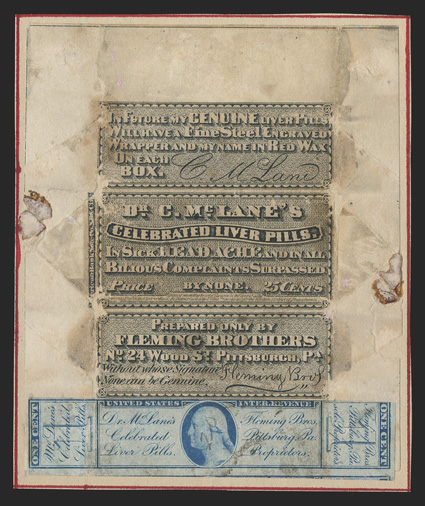 IN FUTURE MY GENUINE LIVER PILLS
WILL HAVE A FINE STEEL ENGRAVED
WRAPPER AND MY NAME IN RED WAX
ON EACH
BOX. C. McLane
DR. C. McLANE'S
CELEBRATED LIVER PILLS.
IN SICK HEAD ACHE AND IN ALL
BILIOUS COMPLAINTS SURPASSED
PRICE BY NONE. 25 CENTS
PREPARED ONLY BY
FLEMING BROTHERS
No. 24 WOOD ST. PITTSBURGH, PA.
Without whose Signature
None can be Genuine. Fleming Bros
UNITED STATES INTER. REVENUE
ONE CENT
Dr. McLane's
Celebrated
Liver Pills.
Fleming Bros.
Pittsburg, Pa.
Proprietors.
ONE CENT